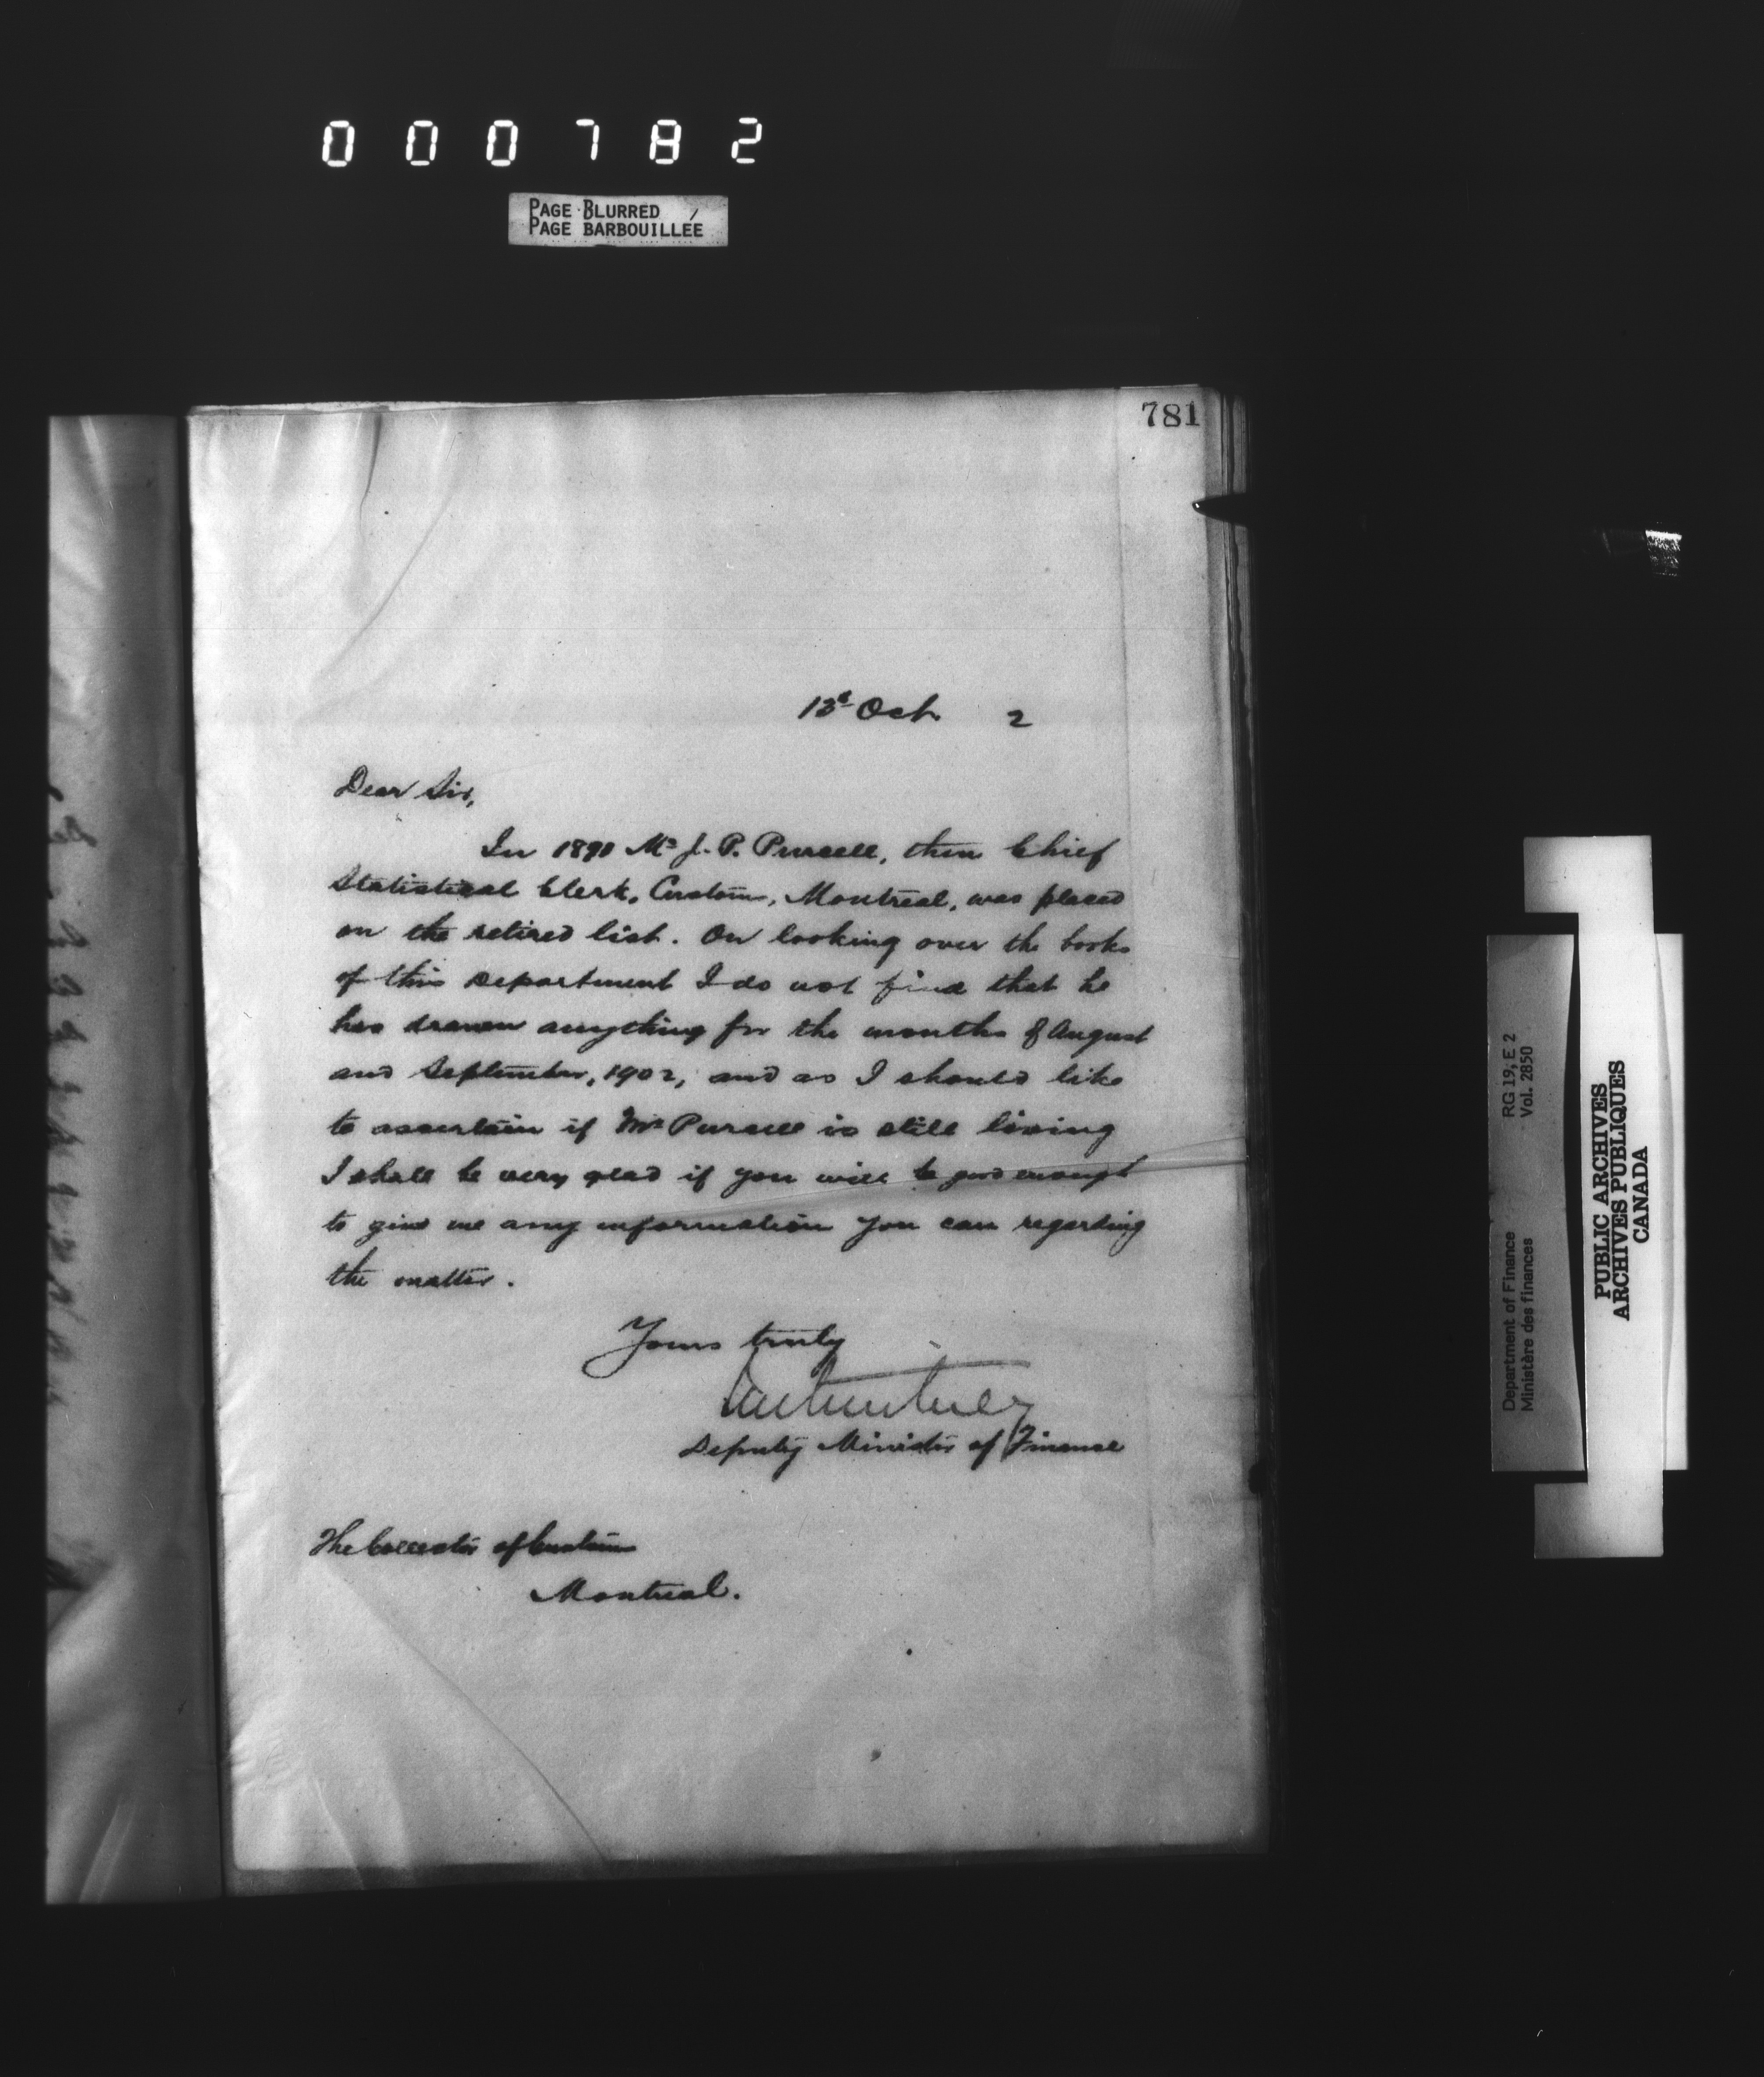 000782
PAGE BLURRED
PAGE BARBOUILLÉE
781
13th Oct 2
Dear Sir,
In 1890 Mr J. P. Purcell, then Chief
Statistical Clerk, Customs, Montreal, was placed
on the retired list. On looking over the books
of this Department I do not find that he
has drawn anything for the months of August
and September, 1902, and as I should like
to ascertain if Mr Purcell is still living
I shall be very glad if you will be good enough
to give me any information you can regarding
the matter.
Yours truly
Deputy Minister of Finance
The Collector of Customs
Montreal.
Department of Finance RG 19, E 2
Ministère des finances Vol. 2850
PUBLIC ARCHIVES
ARCHIVES PUBLIQUES
CANADA